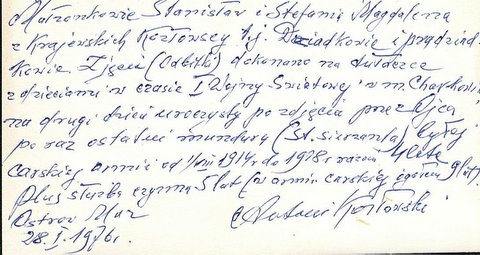 Małżonkowie Stanisław i Stefania Magdalena
z Krajewskich Kozłowscy tj. Dziadkowie i pradziad-
kowie Zdjęcie (Odbitki) dokonano na
z dziećmi w czasie I Wojny Światowej w m. Charków
na drugi dzień uroczysty po zdjęciu przez Ojca
po raz ostatni munduru (St. sierżanta) byłej
carskiej armii od 1/VIII 1914 r. do 1918 r razem 4 lata
plus służba czynna 5 lat (w armii carskiej ogółem 9 lat).
Ostrów Maz Antoni Kozłowski
28.I.1976r.